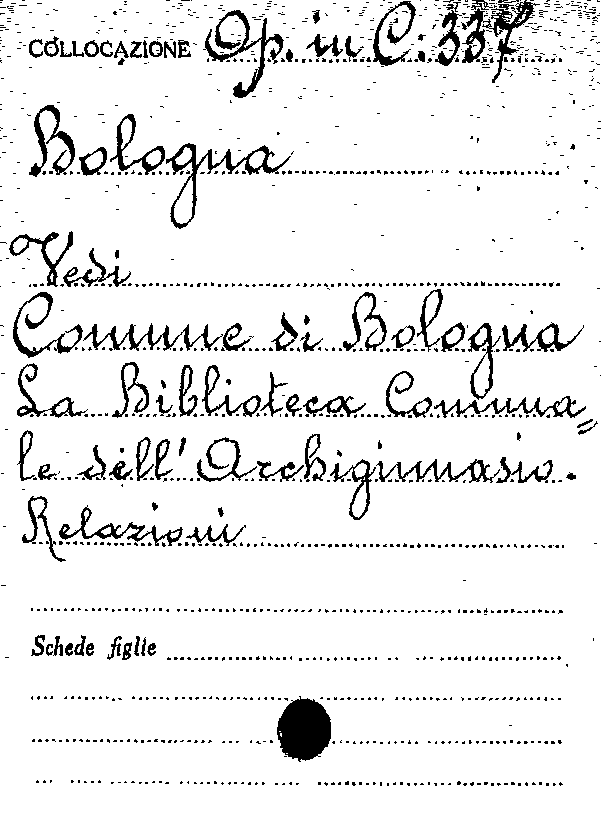 COLLOCAZIONE Op. in C. 337
Bologna
Vedi
Comune di Bologna
La Biblioteca Comuna=
le dell' Archiginnasio.
Relazioni
Schede figlie